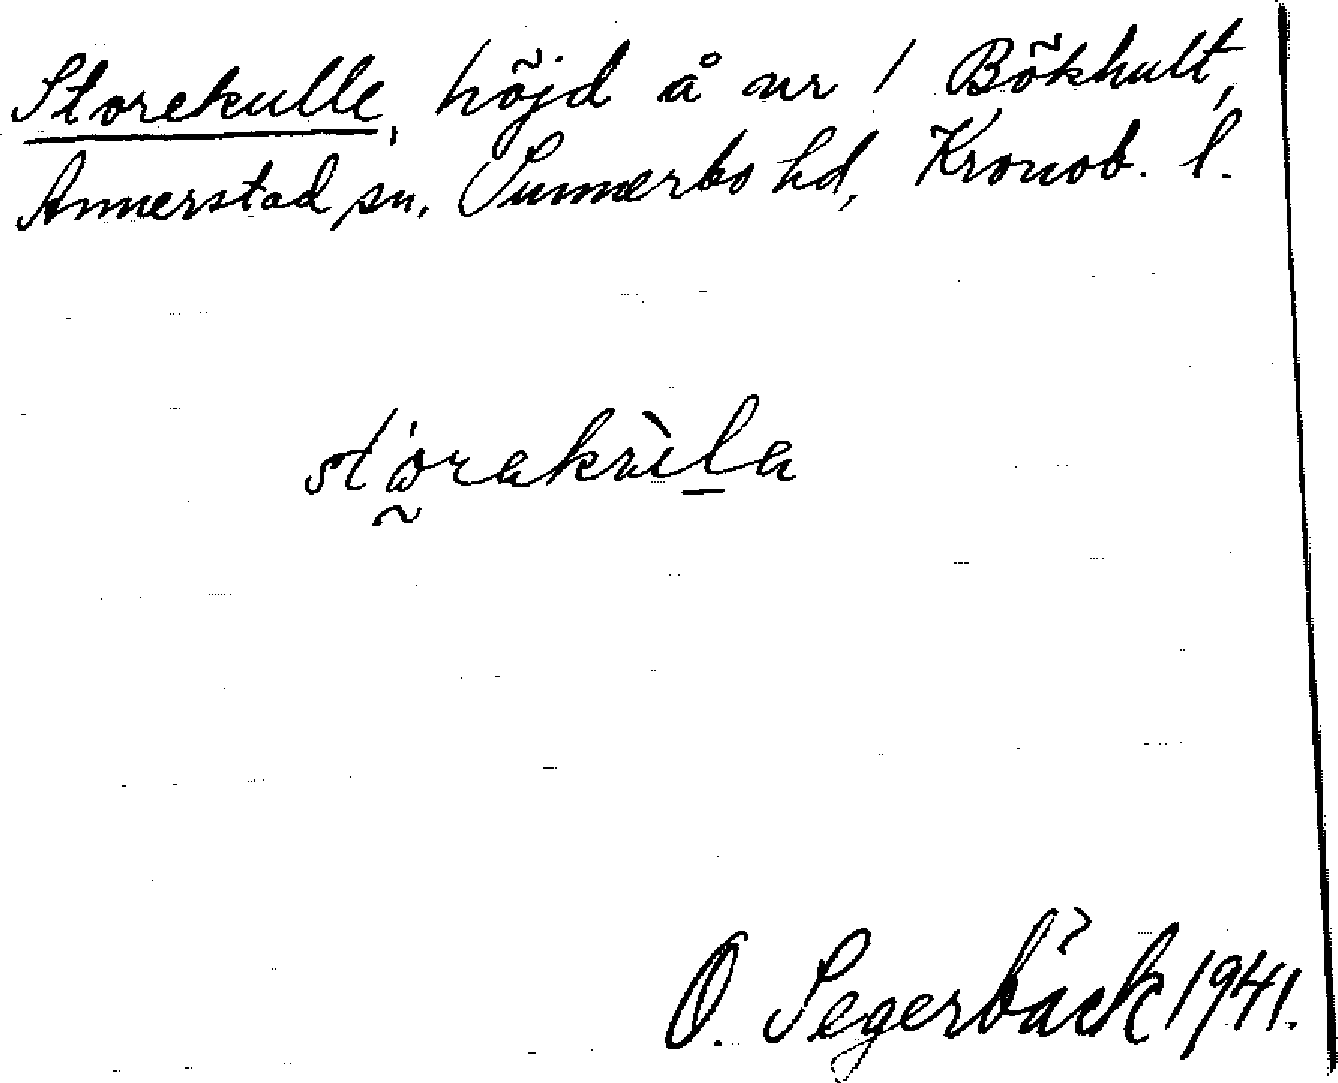 Storekulle, höjd å nr 1 Bökhult,
Annerstad sn. Sunnerbo hd, Kronob. l.
O. Segerbäck 1941.